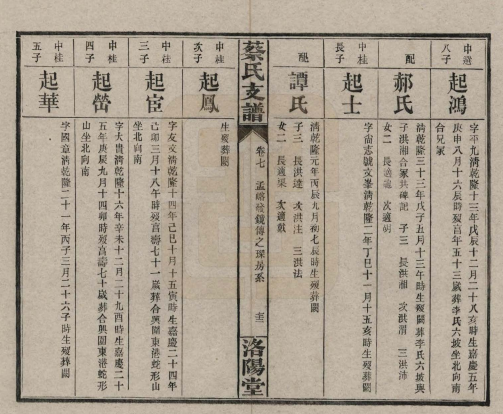 中選
八子
起鴻
字示九清乾隆十一年丙寅十二月二十八亥時生嘉慶五年
庚申八月十六辰時歿享年五十三歲葬李氏六坡坐北向南
台兄冢
配
郝氏
清乾隆三十三年戊子五月十三年時歿葬李氏六坡與
子洪湘合冢共碑記 子三 長洪湘 次洪渭 三洪沛
女二 長適 次適胡
中桂
長子
起士
字尚志號文峯清乾隆二年丁巳十一月十五亥時生歿葬闕
配
譚氏
清乾隆元年丙辰九月初七辰時生歿葬闕
子三 長洪達 次洪注 三洪法
女二 長適梁 次適戴
蔡氏支譜
卷七
孟峪發鏡傳之琛房系
洛陽堂
中桂
次子
起鳳
生歿葬闕
中桂
三子
起宦
字友文清乾隆十四年己巳十月十五寅時生嘉慶二十四年
己卯三月十八午時歿享壽七十一歲葬合興圍東港蛇形山
坐北向南
中桂
四子
起營
字大貴清乾隆十六年辛未十二月二十九酉時生嘉慶二十
五年庚辰九月十四卯時歿享壽七十歲葬合興圍東港蛇形
山坐北向南
中桂
五子
起華
字國意清乾隆二十一年丙子三月二十六子時生歿葬闕